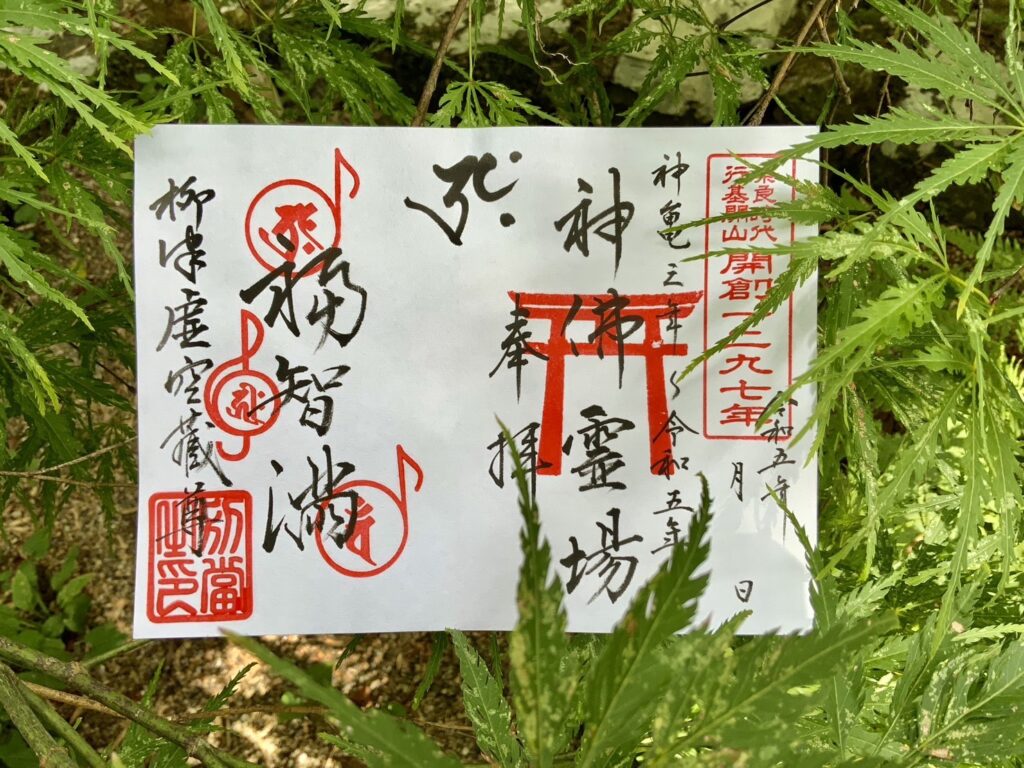 奈良時代
行基開山
開創一二九七年
令和五年
月 日
神亀三年〜令和五年
神佛霊場
奉拝
福智満
柳津虚空蔵尊
別當
之印